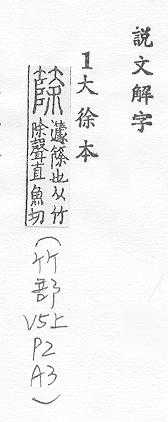 說文解字
1大徐本
篨
籧篨也从竹
除聲直魚切
(竹部V5上P2A3)